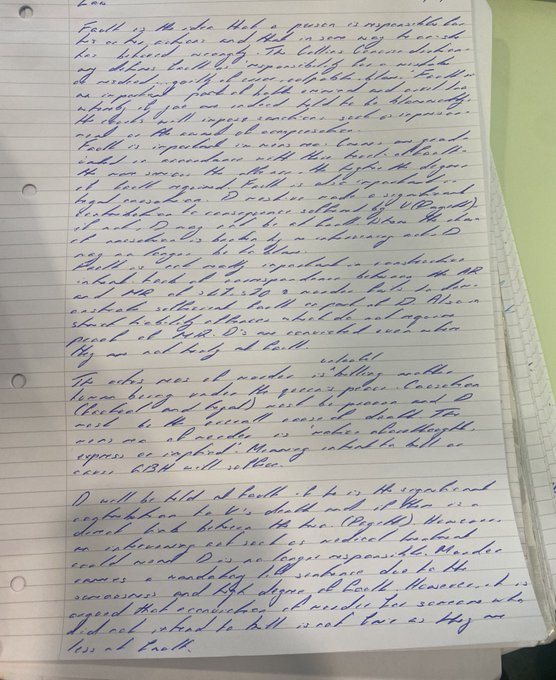 Law
Fault is the idea that a person is responsible for
his or her actions and that in some way he or she
has behaved wrongly. The Collins Concise diction-
ary defines fault as 'responsibility for a mistake
or misdeed ... guilty of error, culpable, blame.' Fault is
an important part of both criminal and civil law
whereby if you are indeed held to be blameworthy
the courts will impose sanctions such as imprison-
ment or the award of compensation.
Fault is important in mens rea. Crimes are grad-
in accordance with their level of fault
the more serious the offence, the higher the degree
of fault required. Fault is also important in
legal causation. D must have made a significant
contribution to consequence suffered by V (Pagett)
if not, D may not be at fault. When the chain
of causation is broken by an intervening act, D
may no longer be to blame.
Fault is not really important in constructive
intent. Lack of correspondence between the AR
and MR of s47, s20 & murder fails to dem-
onstrate sufficient fault on part of D. Also in
strict liability offences which do not require
proof of MR. D's are convicted even where
they are not truly at fault.
The actus reus of murder is unlawful killing another
human being under the queen's peace. Causation
(factual and legal) must be proven and D
must be the overall cause of death. The
mens rea of murder is 'malice aforethought
express or implied'. Meaning intent to kill or
cause GBH will suffice.
D will be held at fault if he is the significant
contribution to V's death and if there is a
direct link between the two. (Pagett) However
an intervening act such as medical treatment
could mean D is no longer responsible. Murder
carries a mandatory life sentence due to the
seriousness and high degree of fault. However, it is
argued that a conviction of murder for someone who
did not intend to kill is not fair as they are
less at fault.